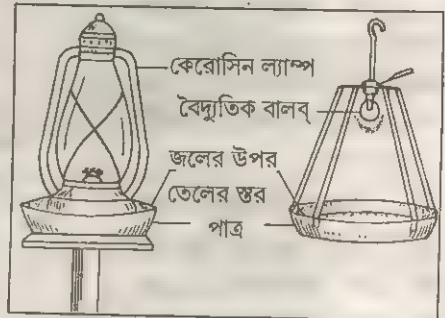 কেরোসিন ল্যাম্প
বৈদ্যুতিক বালব্
জলের উপর
তেলের স্তর
পাত্র